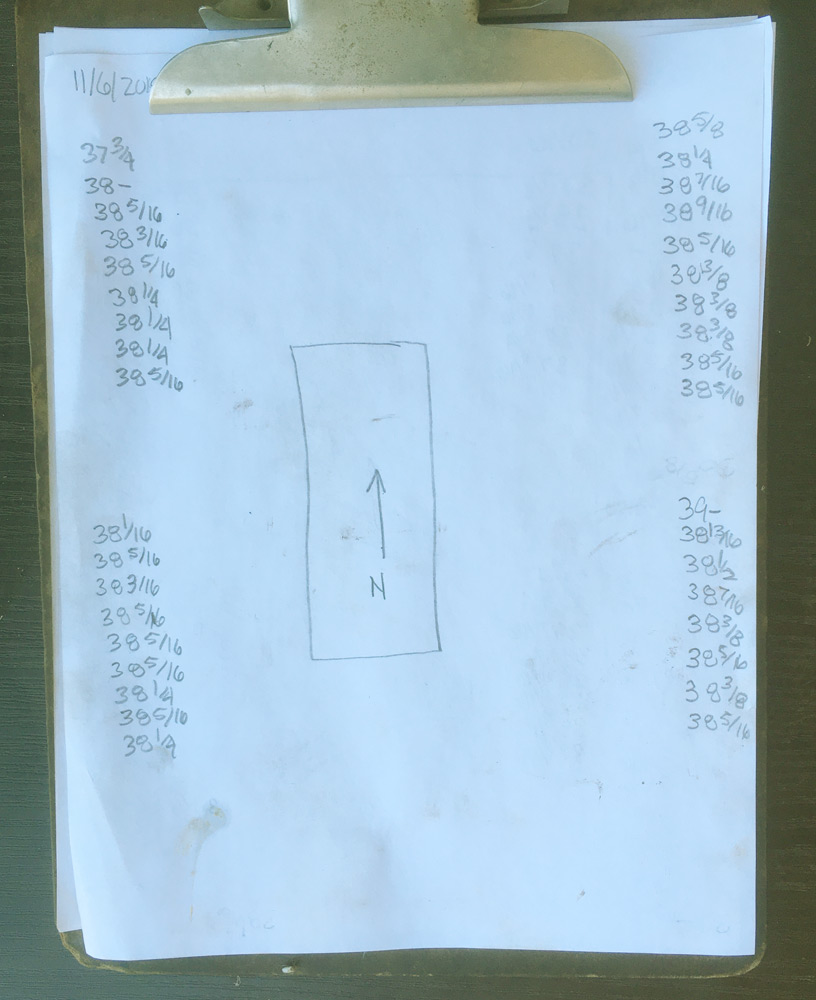 11/6/201
37 3/4
38-
38 5/16
38 3/16
38 5/16
38 1/4
38 1/4
38 1/4
38 5/16
38 5/8
38 1/4
38 7/16
38 9/16
38 5/16
38 3/8
38 3/8
38 3/8
38 5/16
38 5/16
N
38 1/16
38 5/16
38 3/16
38 5/16
38 5/16
38 5/16
38 1/4
38 5/16
38 1/4
39-
38 13/16
38 1/2
38 7/16
38 3/8
38 5/16
38 3/8
38 5/16